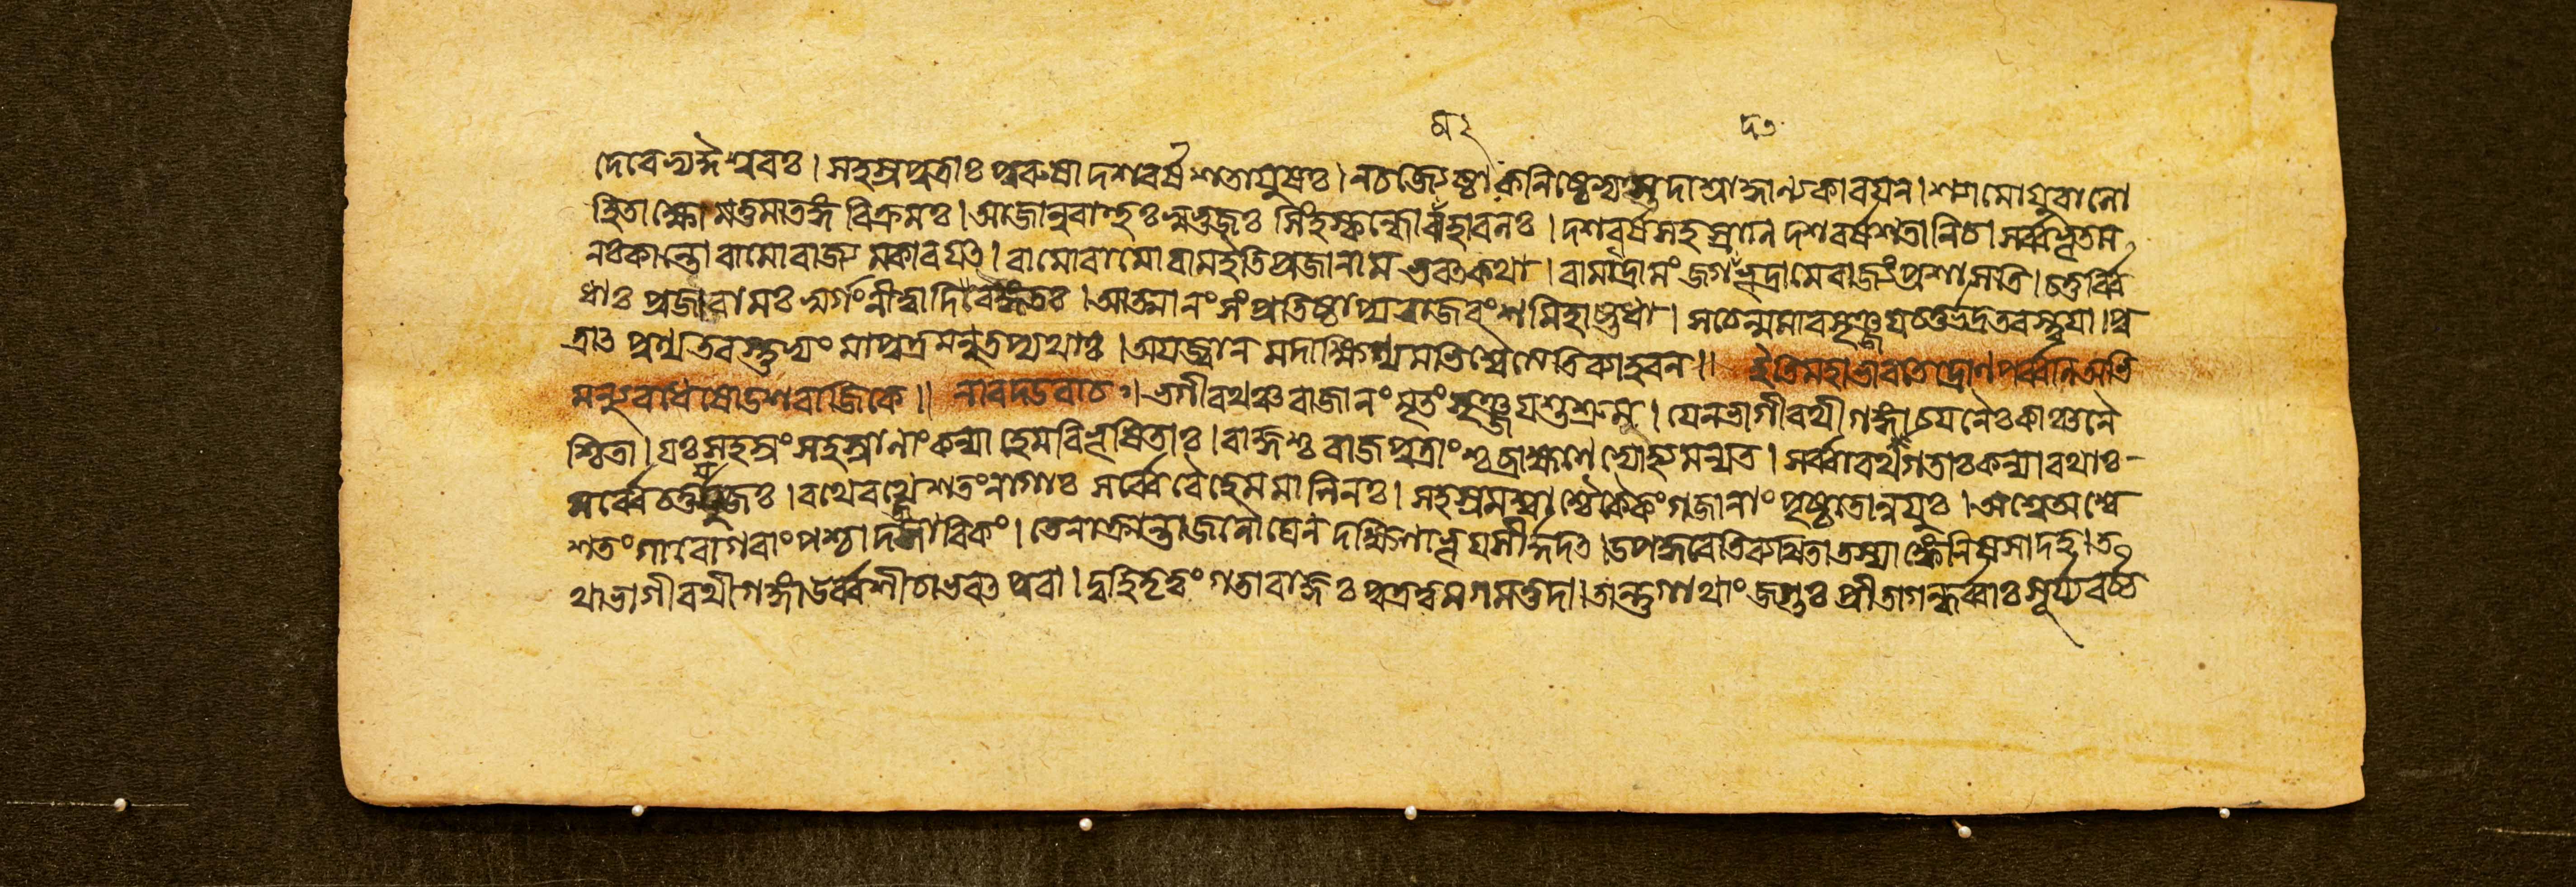 দেবেভ্যশ্চৈশ্বরঃ । সহস্রপুত্রাঃ পুরুষা দশবর্ষ শতায়ুষঃ । নচজ্যেষ্ঠা কনিষ্ঠেভ্যস্তদাশ্রাদ্ধান্যকারয়ন । শ্যামোয়ুবালো
হিতাক্ষো মত্তমাতঙ্গ বিক্রমঃ । আজানুবাহুঃ সুভুজঃ সিংহস্কন্ধো মহাবলঃ । দশবর্ষসহস্রাণি দশবর্ষশতানিচ । সর্ব্বভূতম
নঃকান্তো রামোরাজ্য মকারয়ৎ । রামোরামো রামইতি প্রজানাম ভবৎকথা । রামাদ্রামং জগদভূদ্রামেরাজ্যং প্রশাসতি । চতুর্ব্বি
ধাঃ প্রজারামঃ স্বর্গংনীত্বাদিবংগতঃ । আত্মানং সংপ্রতিষ্ঠাপ্য রাজবংশমিহাষ্টধা । সচেন্মমারসৃঞ্জয় চতুর্ভদ্রতরস্ত্বয়া । পু
ত্রাৎ পুণ্যতরস্তুভ্যং মাপুত্রমনুতপ্যথাঃ । অযজ্বান মদাক্ষিণ্যমভিশ্বৈত্যেতিব্যাহরন ॥ ইতিমহাভারতেদ্রোণপর্ব্বণিঅভি
মন্যুবধেষোডশরাজিকে ॥ নারদউবাচ । ভগীরথঞ্চরাজানং মৃতং সৃঞ্জয়শুশ্রুম । যেনভাগীরথীগঙ্গা চয়নৈঃকাঞ্চনৈ
শ্চিতা । যঃসহস্রং সহস্রানাং কন্যা হেমবিভূষিতাঃ । রাজ্ঞশ্চ রাজপুত্রাংশ্চব্রাহ্মণেভ্যোহ্যমন্যত । সর্ব্বারথগতাঃকন্যারথাঃ
সর্ব্বেচতুর্যুজঃ । রথেরথেশতংনাগাঃ সর্ব্বেবৈহেমমালিনঃ । সহস্রমশ্বাশ্চৈকৈকংগজানাং পৃষ্ঠতোন্বয়ুঃ । অশ্বেঅশ্বে
শতংগাবোগবাং পশ্চাদজাবিকং । তেনাক্রান্তাজনৌঘেন দক্ষিণাভূয়সীর্দ্দদৎ । উপহ্বরেতিব্যথিতাতস্যাঙ্কেনিষসাদহ । ত
থাভাগীরথীগঙ্গাউর্ব্বশীচাভবৎ পুরা । দুহিতৃত্বংগতারাজ্ঞঃ পুত্রত্বমগমত্তদা । তান্তুগাথাং জগুঃ প্রীতাগন্ধর্ব্বাঃ সূর্য্যবর্চ্চ